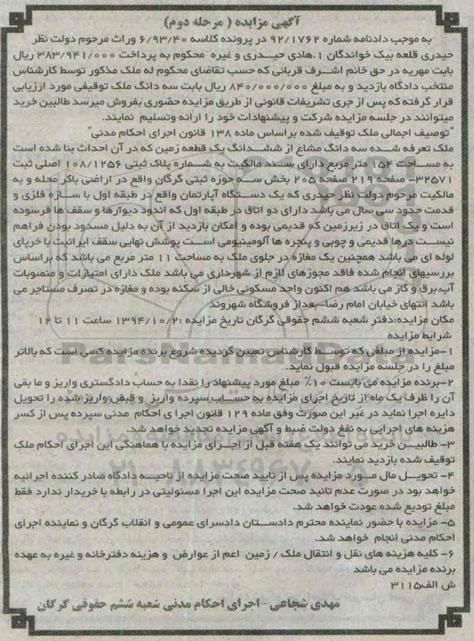 آگهی مزایده ( مرحله دوم)
به موجب دادنامه شماره ۹۲/۱۷۶۲ در پرونده کلاسه ۶/۹۳/۴۰ وراث مرحوم دولت نظر
حیدری قلعه بیک خواندگان ۱.هادی حیدری و غیره محکوم به پرداخت ۳۸۳/۹۴۱/۰۰۰ ریال
بابت مهریه در حق خانم اشرف قربانی که حسب تقاضای محکوم له ملک مذکور توسط کارشناس
منتخب دادگاه بازدید و به مبلغ ۸۴۰/۰۰۰/۰۰۰ ریال بابت سه دانگ ملک توقیفی مورد ارزیابی
قرار گرفته که پس از جری تشریفات قانونی از طریق مزایده حضوری بفروش میرسد طالبین خرید
میتوانند در جلسه مزایده شرکت و پیشنهادات خود را ارائه وتسلیم نمایند.
"توصیف اجمالی ملک توقیف شده براساس ماده ۱۳۸ قانون اجرای احکام مدنی"
ملک تعرفه شده سه دانگ مشاع از ششدانگ یک قطعه زمین که در آن احداث بنا شده است
به مساحت ۱۵۴ متر مربع دارای سند مالکیت به شماره پلاک ثبتی ۱۰۸/۱۲۵۶ اصلی ثبت
۳۲۵۷۱- صفحه ۲۱۹ صفحه ۲۰۵ بخش سه حوزه ثبتی گرگان واقع در اراضی باکر محله و به
مالکیت مرحوم دولت نظر حیدری که یک دستگاه آپارتمان واقع در طبقه اول با سازه فلزی و
قدمت حدود سی سال می باشد دارای دو اتاق در طبقه اول که اندود دیوارها و سقف ها فرسوده
است و یک اتاق در زیرزمین که قدیمی بوده و امکان بازدید از آن به دلیل مسدود بودن فراهم
نیست درها قدیمی و چوبی و پنجره ها آلومینیومی است پوشش نهایی سقف ایرانیت با خرپای
لوله ای می باشد همچنین یک مغازه در جلوی ملک به مساحت ۱۱ متر مربع می باشد که براساس
بررسیهای انجام شده فاقد مجوزهای لازم از شهرداری می باشد ملک دارای امتیازات و منصوبات
آب،برق و گاز می باشد هم اکنون واحد مسکونی خالی از سکنه بوده و مغازه در تصرف مستاجر می
باشد انتهای خیابان امام رضا-بعداز فروشگاه شهروند
مکان مزایده:دفتر شعبه ششم حقوقی گرگان تاریخ مزایده ۱۳۹۴/۱۰/۲۱ ساعت ۱۱ تا ۱۲
شرایط مزایده
۱-مزایده از مبلغی که توسط کارشناس تعیین گردیده شروع برنده مزایده کسی است که بالاتر
مبلغ را در جلسه مزایده قبول نماید.
۲-برنده مزایده می بایست ۱۰٪ مبلغ مورد پیشنهاد را نقدا به حساب دادگستری واریز و ما بقی
آن را ظرف یک ماه از تاریخ اجرای مزایده به حساب سپرده واریز و قبض واریز شده را تحویل
دایره اجرا نماید در غیر این صورت وفق ماده ۱۲۹ قانون اجرای احکام مدنی سپرده پس از کسر
هزینه های اجرایی به نفع دولت ضبط و آگهی مزایده تجدید خواهد شد.
۳- طالبین خرید می توانند یک هفته قبل از اجرای مزایده با هماهنگی این اجرای احکام ملک
توقیف شده بازدید نمایند.
۴- تحویل مال مورد مزایده پس از تایید صحت مزایده از ناحیه دادگاه صادر کننده اجرائیه
خواهد بود در صورت عدم تائید صحت مزایده این اجرا مسئولیتی در رابطه با خریدار ندارد فقط
مبلغ تودیع شده عودت خواهد شد.
۵- مزایده با حضور نماینده محترم دادستان دادسرای عمومی و انقلاب گرگان و نماینده اجرای
احکام مدنی انجام خواهد شد.
۶- کلیه هزینه های نقل و انتقال ملک / زمین اعم از عوارض و هزینه دفترخانه و غیره به عهده
برنده مزایده می باشد
ش الف۳۱۱۵
مهدی شجاعی - اجرای احکام مدنی شعبه ششم حقوقی گرگان
ParsNamadData
۰۲۱-۸۸۳۴۹۶۷۰